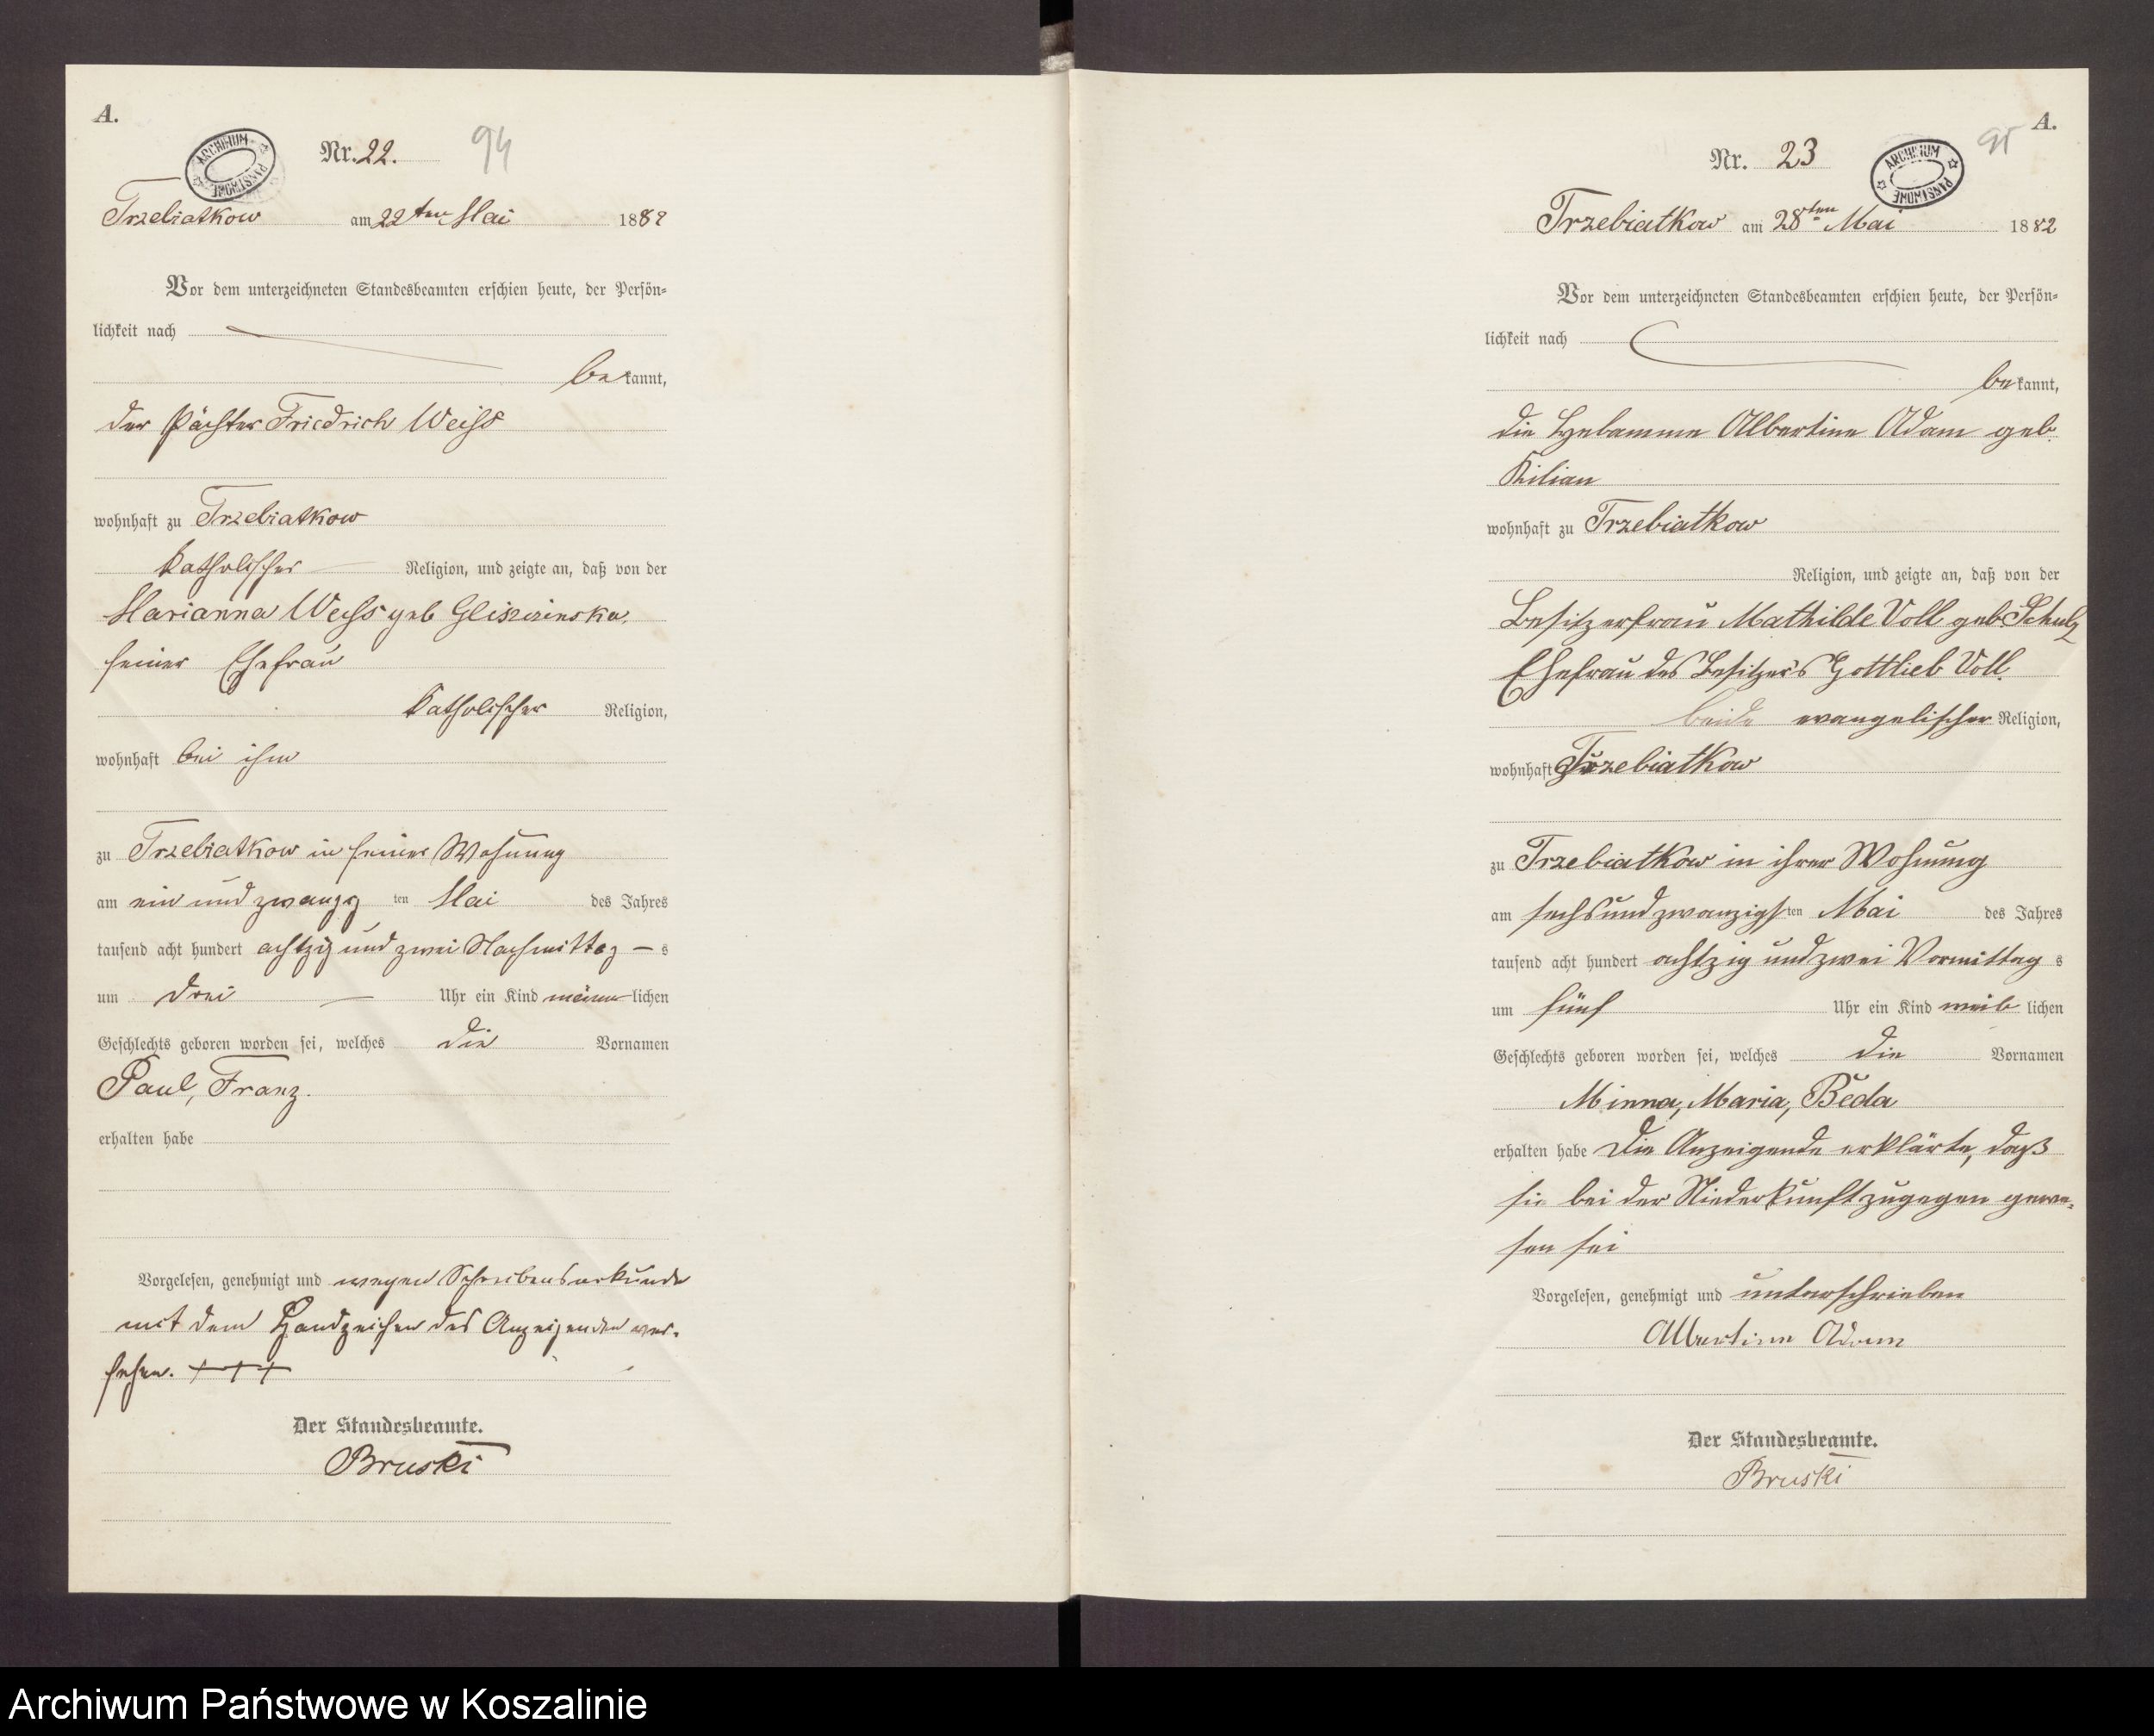 A.
ARCHIWUM PAŃSTWOWE
Nr. 22.
94
Trzebiatkow am 22ten Mai 1882
Vor dem unterzeichneten Standesbeamten erschien heute, der Persön-
lichkeit nach
bekannt,
der Pächter Friedrich Weiss
wohnhaft zu Trzebiatkow
katholischer Religion, und zeigte an, daß von der
Marianna Weiss geb
seiner Ehefrau
katholischer Religion,
wohnhaft bei ihm
zu Trzebiatkow in seiner Wohnung
am ein und zwanzig ten Mai des Jahres
tausend acht hundert achtzig und zwei Nachmittag – s
um drei Uhr ein Kind männlichen
Geschlechts geboren worden sei, welches die Vornamen
Paul, Franz.
erhalten habe
Vorgelesen, genehmigt und wegen Schreibensunkunde
mit dem Handzeichen des Anzeigenden ver-
sehen. +++
Der Standesbeamte.
Bruski
A.
95
Nr. 23
ARCHIWUM PAŃSTWOWE
Trzebiatkow am 28ten Mai 1882
Vor dem unterzeichneten Standesbeamten erschien heute, der Persön-
lichkeit nach
bekannt,
die Hebamme Albertine Adam geb.
Kilian
wohnhaft zu Trzebiatkow
Religion, und zeigte an, daß von der
Besitzerfrau Mathilde Voll geb Schulz
Ehefrau des Besitzers Gottlieb Voll.
beide evangelischer Religion,
wohnhaft Trzebiatkow
zu Trzebiatkow in ihrer Wohnung
am sechsundzwanzigsten Mai des Jahres
tausend acht hundert achtzig und zwei Vormittag s
um fünf Uhr ein Kind weiblichen
Geschlechts geboren worden sei, welches die Vornamen
Minna, Maria, Beda
erhalten habe Die Anzeigende erklärte, daß
sie bei der Niederkunft zugegen gewe-
sen sei
Vorgelesen, genehmigt und unterschrieben
Albertine Adam
Der Standesbeamte.
Bruski
Archiwum Państwowe w Koszalinie